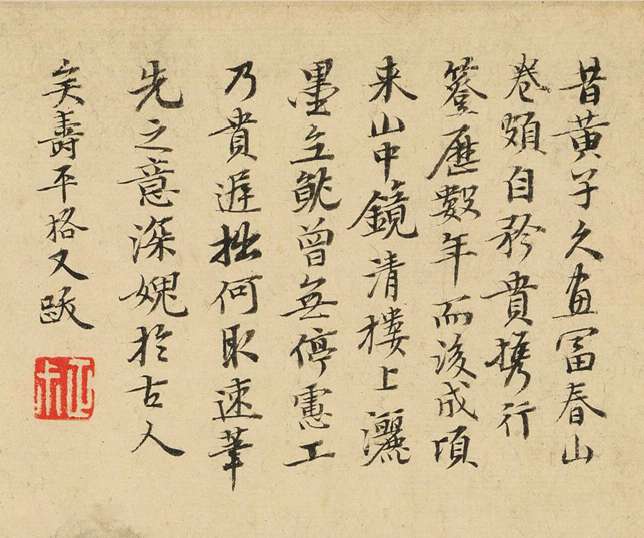 昔黃子久畫富春山
卷頗自矜貴携行
簦歷數年而後成頃
来山中鏡清樓上灑
墨立就曾無停慮工
乃貴遲拙何取速筆
先之意深媿於古人
矣壽平格又跋
正叔